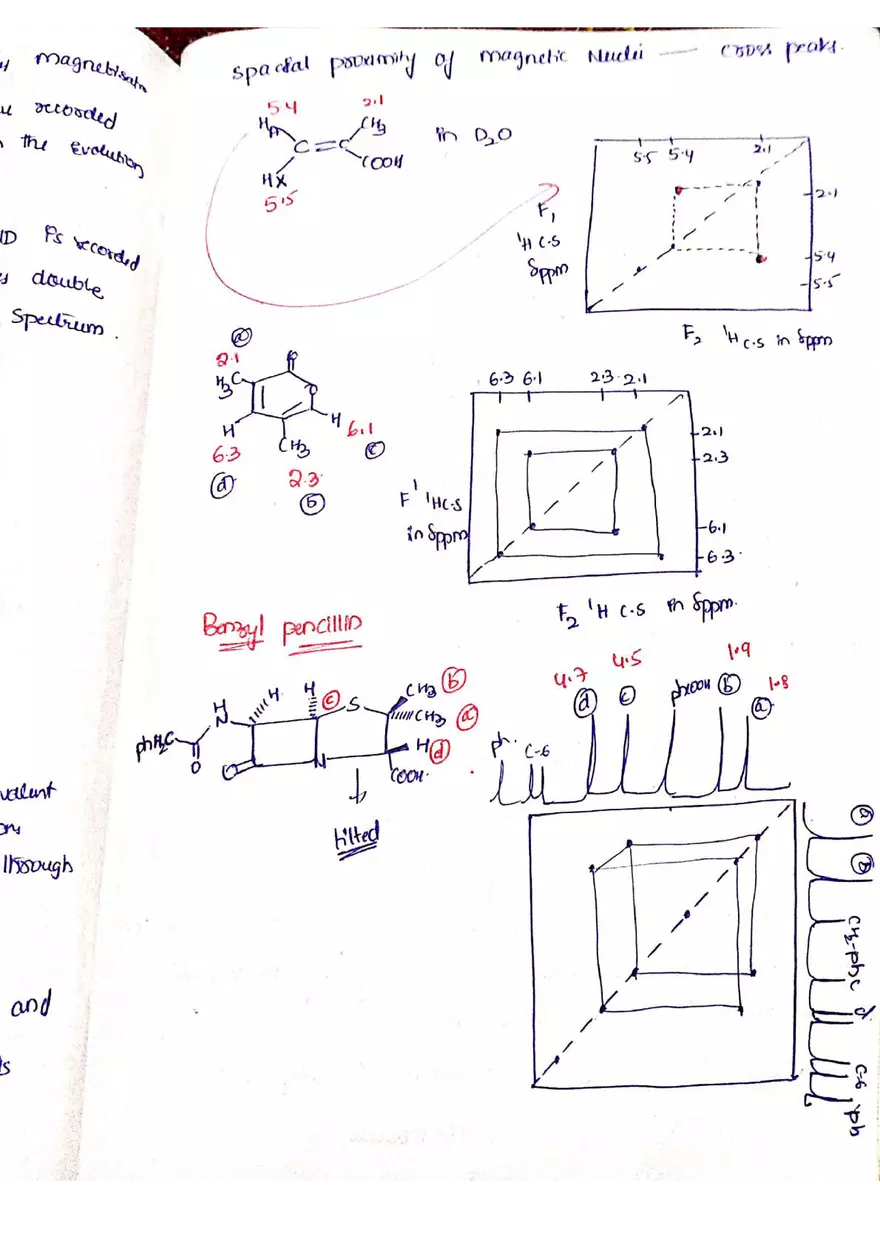 magnetisatn
recorded
the Evolution
ID is recorded
double
Spectrum.
valent
through
and
spacial proximity of magnetic Nuclei — cross peaks.
5.4 2.1
HA CH3
C=C in D2O
HX COOH
5.5
5.5 5.4 2.1
2.1
5.4
5.5
F1
1H C.S
δppm
F2 1H C.S in δppm
a
2.1 O
H3C O
H H 6.1
6.3 CH3 c
d 2.3
b
6.3 6.1 2.3 2.1
2.1
2.3
6.1
6.3
F1 1H C.S
in δppm
F2 1H C.S in δppm.
Benzyl pencillin
H H H c S CH3 b
N CH3 a
phH2C O O N H d
COOH.
tilted
4.7 4.5 1.9 1.8
ph. C-6 d c b a
a
b
d
C-6
ph